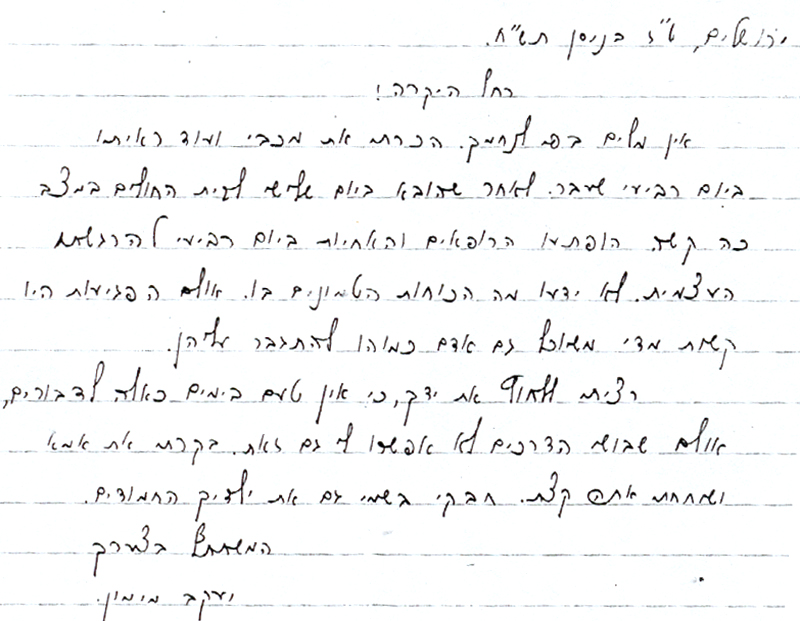 ירושלים, ט"ז בניסן תש"ח.
רחל היקרה!
אין מלים בפי לנחמך. הכרתי את מכבי ועוד ראיתו
ביום רביעי שעבר. לאחר שהובא ביום שלישי לבית החולים במצב
כה קשה הופתעו הרופאים והאחיות ביום רביעי להרגשתו
העצמית. לא ידעו מה הכוחות הטמונים בו. אולם הפגיעות היו
קשות מדי משיוכל גם אדם כמוהו להתגבר עליהן.
רציתי ללחוץ את ידך, כי אין טעם בימים כאלה לדבורים,
אולם שבושי הדרכים לא אפשרו לי גם זאת. בקרתי את אמא
ושוחחתי אתה קצת. חבקי בשמי גם את ילדיך החמודים.
המשתתף בצערך
יעקב מימון.